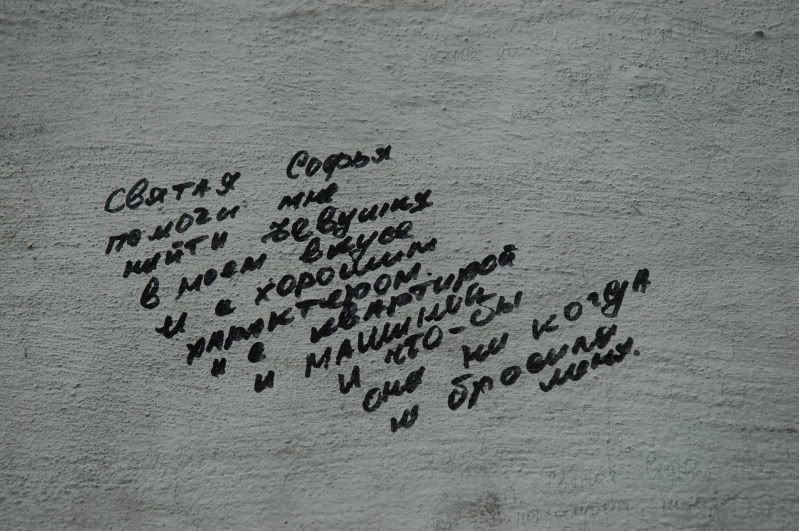 Святая Софья
помоги мне
найти девушку
в моем вкусе
и с хорошим
характером.
и с квартирой
и машиной
и что-бы
она ни когда
не бросила
меня.